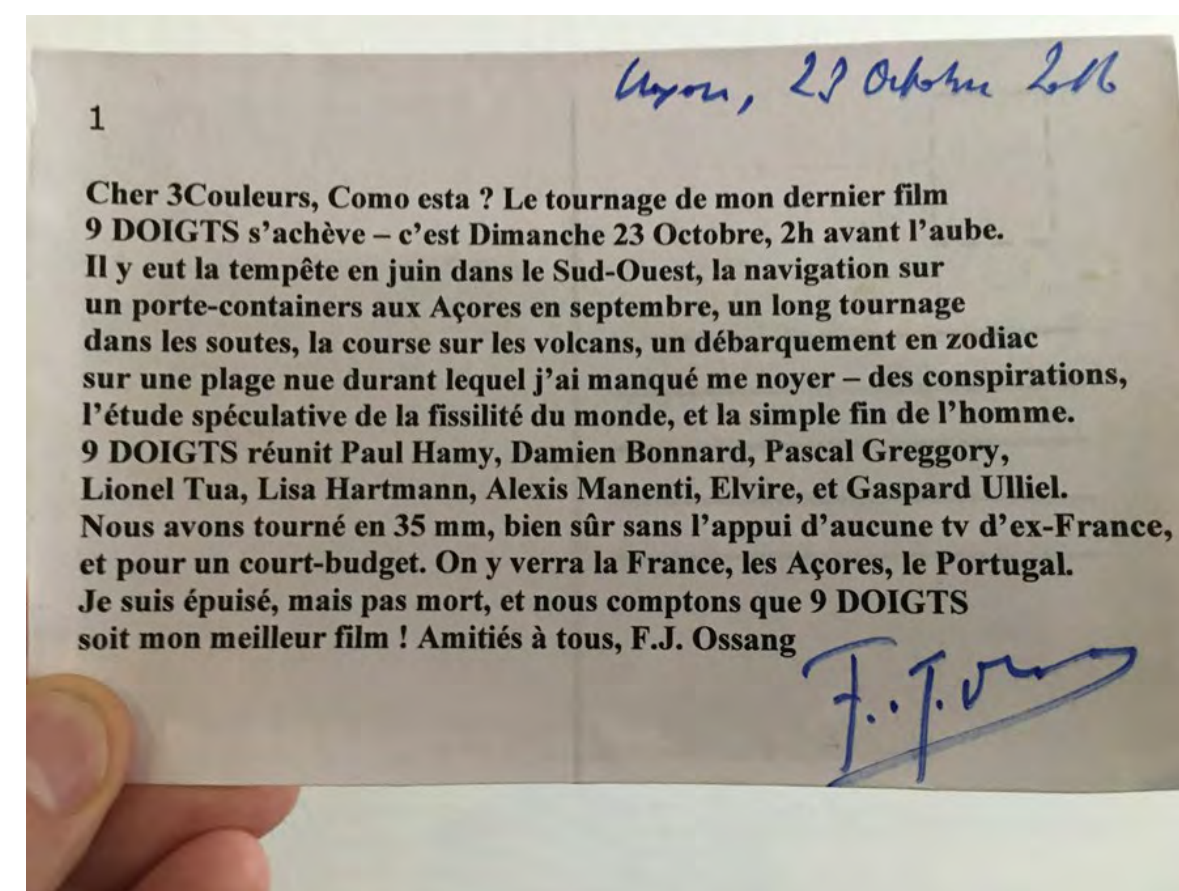 23 Octobre 2016
1
Cher 3Couleurs, Como esta ? Le tournage de mon dernier film
9 DOIGTS s’achève – c’est Dimanche 23 Octobre, 2h avant l’aube.
Il y eut la tempête en juin dans le Sud-Ouest, la navigation sur
un porte-containers aux Açores en septembre, un long tournage
dans les soutes, la course sur les volcans, un débarquement en zodiac
sur une plage nue durant lequel j’ai manqué me noyer – des conspirations,
l’étude spéculative de la fissilité du monde, et la simple fin de l’homme.
9 DOIGTS réunit Paul Hamy, Damien Bonnard, Pascal Greggory,
Lionel Tua, Lisa Hartmann, Alexis Manenti, Elvire, et Gaspard Ulliel.
Nous avons tourné en 35 mm, bien sûr sans l’appui d’aucune tv d’ex-France,
et pour un court-budget. On y verra la France, les Açores, le Portugal.
Je suis épuisé, mais pas mort, et nous comptons que 9 DOIGTS
soit mon meilleur film ! Amitiés à tous, F.J. Ossang